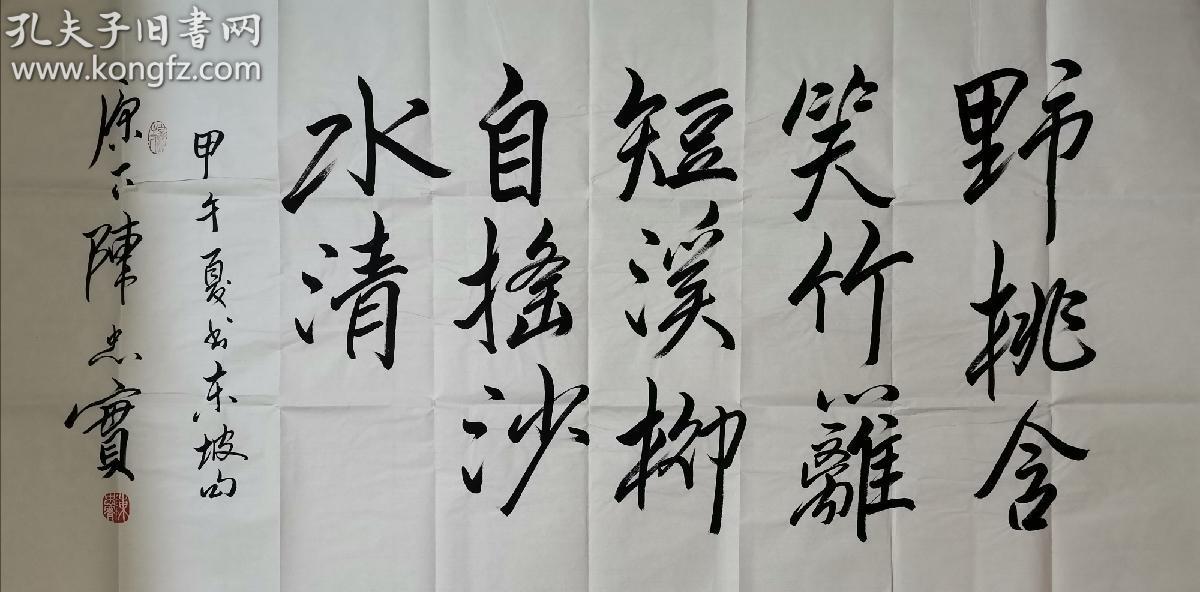 孔夫子旧书网
www.kongfz.com
野桃含
笑竹籬
短溪柳
自搖沙
水清
甲午夏书东坡句
原下陳忠實